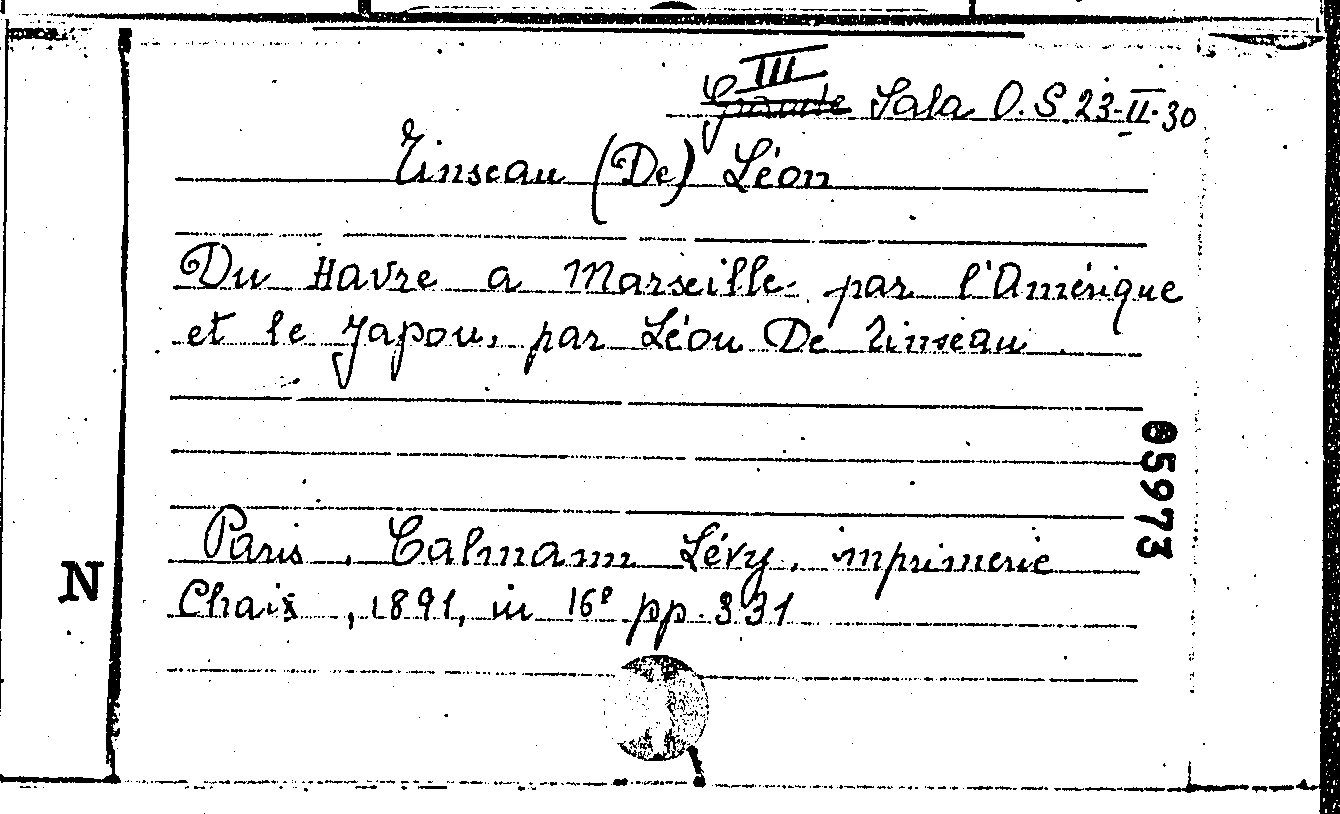 III
Grande Sala O.S. 23-II-30
Tinseau (De) Léon
Du Havre a Marseille par l'Amérique
et le Japon, par Léon De Tinseau
05973
Paris, Calmann Lévy, imprimerie
N
Chaix, 1891, in 16º pp. 331